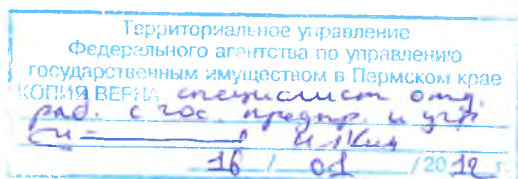 Территориальное управление
Федерального агентства по управлению
государственным имуществом в Пермском крае
КОПИЯ ВЕРНА специалист отд.
раб. с гос. предпр. и
16 / 01 / 2012 г.